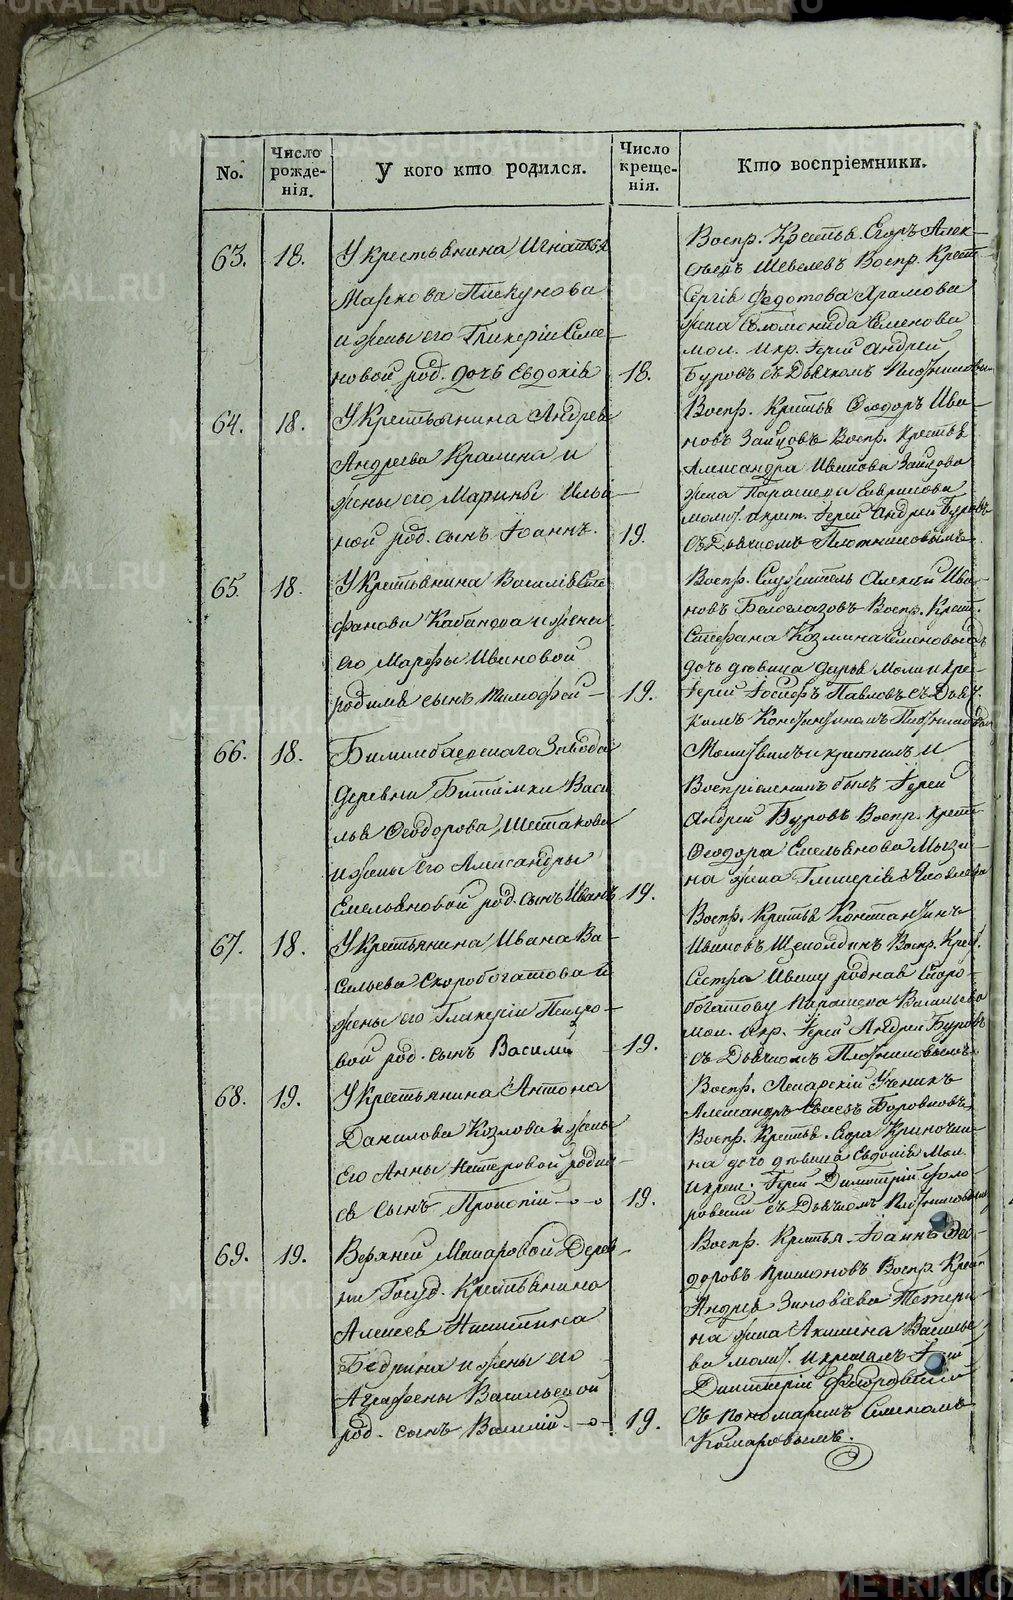 No.
Число рожденія.
У кого кто родился.
Число крещенія.
Кто воспріемники.
63. 18.
У крестьянина Игнатья
Маркова Пискунова
и жены его Гликеріи Семе-
новой род. дочь Евдокія
18.
Воспр. Крестья. Егоръ Алек-
сѣевъ Шевелевъ Воспр. Крест-
Сергія Федотова Храмова
жена Соломонида Семенова
мол. и кр. Іерей Андрей
Буровъ съ Дьячкомъ
64. 18.
У Крестьянина Андрея
Андреева Кралина и
жены его Марины Ильи-
ной род. сынъ Іоаннъ.
19.
Воспр. Крестья Ѳеодоръ Ива-
новъ Зайцовъ Воспр. Крестья
Александра Иванова Зайцова
жена Параскева
молит. и крест. Іерей Андрей Буровъ
съ Дьячкомъ Плотниковымъ
65. 18.
У Крестьянина Василія Сте-
фанова Кабанова и жены
его Марфы Ивановой
родился сынъ Тимофей-
19.
Воспр. Служитель Алексѣй Ива-
новъ Белоглазовъ Воспр. Крест.
Стефана Козмина
дочь дѣвица Дарья Молит. и кре-
Іерей Іосифъ Павловъ съ Дьяч-
комъ Константиномъ
66. 18.
Билимбаевскаго Завода
Деревни Битимки Васи
лья Ѳеодорова Шестакова
и жены его Александры
Емельяновой род. сынъ Иванъ
19.
Молитвилъ и крестилъ и
Воспріемник былъ Іерей
Андрей Буровъ Воспр. крест
Ѳеодора Емельянова
на жена Гликерія Яковлева
67. 18.
У Крестьянина Ивана Ва-
сильева Скоробогатова и
жены его Гликеріи Петро-
вой род. сынъ Василій
19.
Воспр. Крестья Константинъ
Ивановъ Щеколдинъ Воспр. Крес.
Сестра Ивану родная Скоро-
богатову Параскева Васильева
мол. и кр. Іерей Андрей Буровъ
съ Дьячкомъ Плотниковымъ
68. 19.
У Крестьянина Антона
Данилова Козлова и жены
Его Анны Нестеровой родил-
ся Сынъ Прокопій -о-о
19.
Воспр. Лекарскій Ученикъ
Александръ Боровковъ,
Воспр. Крестья.
на дочь дѣвица Евдокія Мол.
и крест. Іерей Димитрій Фло-
ровскій съ Дьячкомъ
69. 19.
Верхней Макаровой Дерев-
ни Госуд. Крестьянина
Алексея Никитина
Бедрина и жены его
Аграфены Васильевой
род. сынъ Василій -о-
19.
Воспр. Крестья. Іоаннъ Ѳео-
доровъ Воспр. Крест
Андрея Зиновіева Тетери-
на жена Акилина Василье-
ва молит. и крестилъ Іерей
Димитрій Флоровскій
Съ пономаремъ Семеномъ
Комаровымъ.